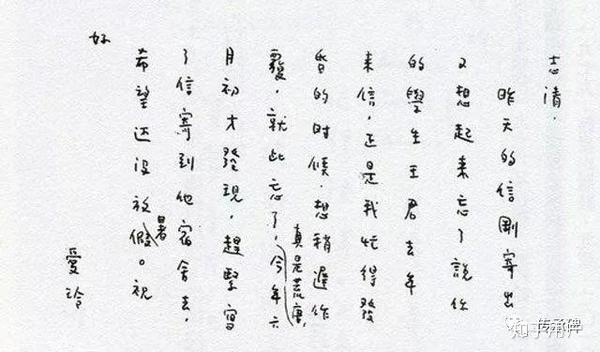 志清，
昨天的信剛寄出
又想起来忘了說你
的學生王君去年
来信，正是我忙得發
昏的时候，想稍遲作
真是荒唐，
覆，就此忘了，今年六
月初才發現，趕緊寫
了信寄到他宿舍去，
希望还没放暑假。祝
好
愛玲
传承碑